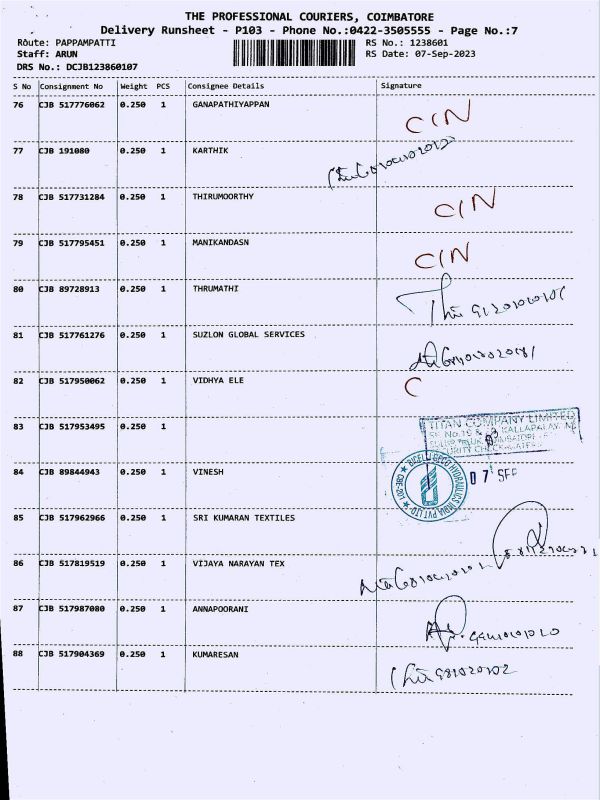 THE PROFESSIONAL COURIERS, COIMBATORE
Delivery Runsheet - P103 - Phone No.:0422-3505555 - Page No.:7
Route: PAPPAMPATTI
RS No.: 1238601
Staff: ARUN
RS Date: 07-Sep-2023
DRS No.: DCJB123860107
S No Consignment No Weight PCS Consignee Details Signature
76 CJB 517776062 0.250 1 GANAPATHIYAPPAN CIN
77 CJB 191080 0.250 1 KARTHIK
78 CJB 517731284 0.250 1 THIRUMOORTHY CIN
79 CJB 517795451 0.250 1 MANIKANDASN CIN
80 CJB 89728913 0.250 1 THRUMATHI
81 CJB 517761276 0.250 1 SUZLON GLOBAL SERVICES
82 CJB 517950062 0.250 1 VIDHYA ELE C
TITAN COMPANY LIMITED
83 CJB 517953495 0.250 1
84 CJB 89844943 0.250 1 VINESH 07 SEP
85 CJB 517962966 0.250 1 SRI KUMARAN TEXTILES
86 CJB 517819519 0.250 1 VIJAYA NARAYAN TEX
87 CJB 517987080 0.250 1 ANNAPOORANI
88 CJB 517904369 0.250 1 KUMARESAN